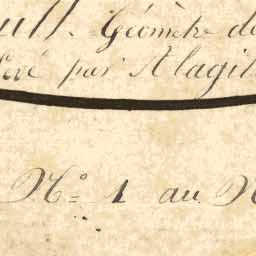 ult. Géomètre de
levé par Alagil
N° 1 au N